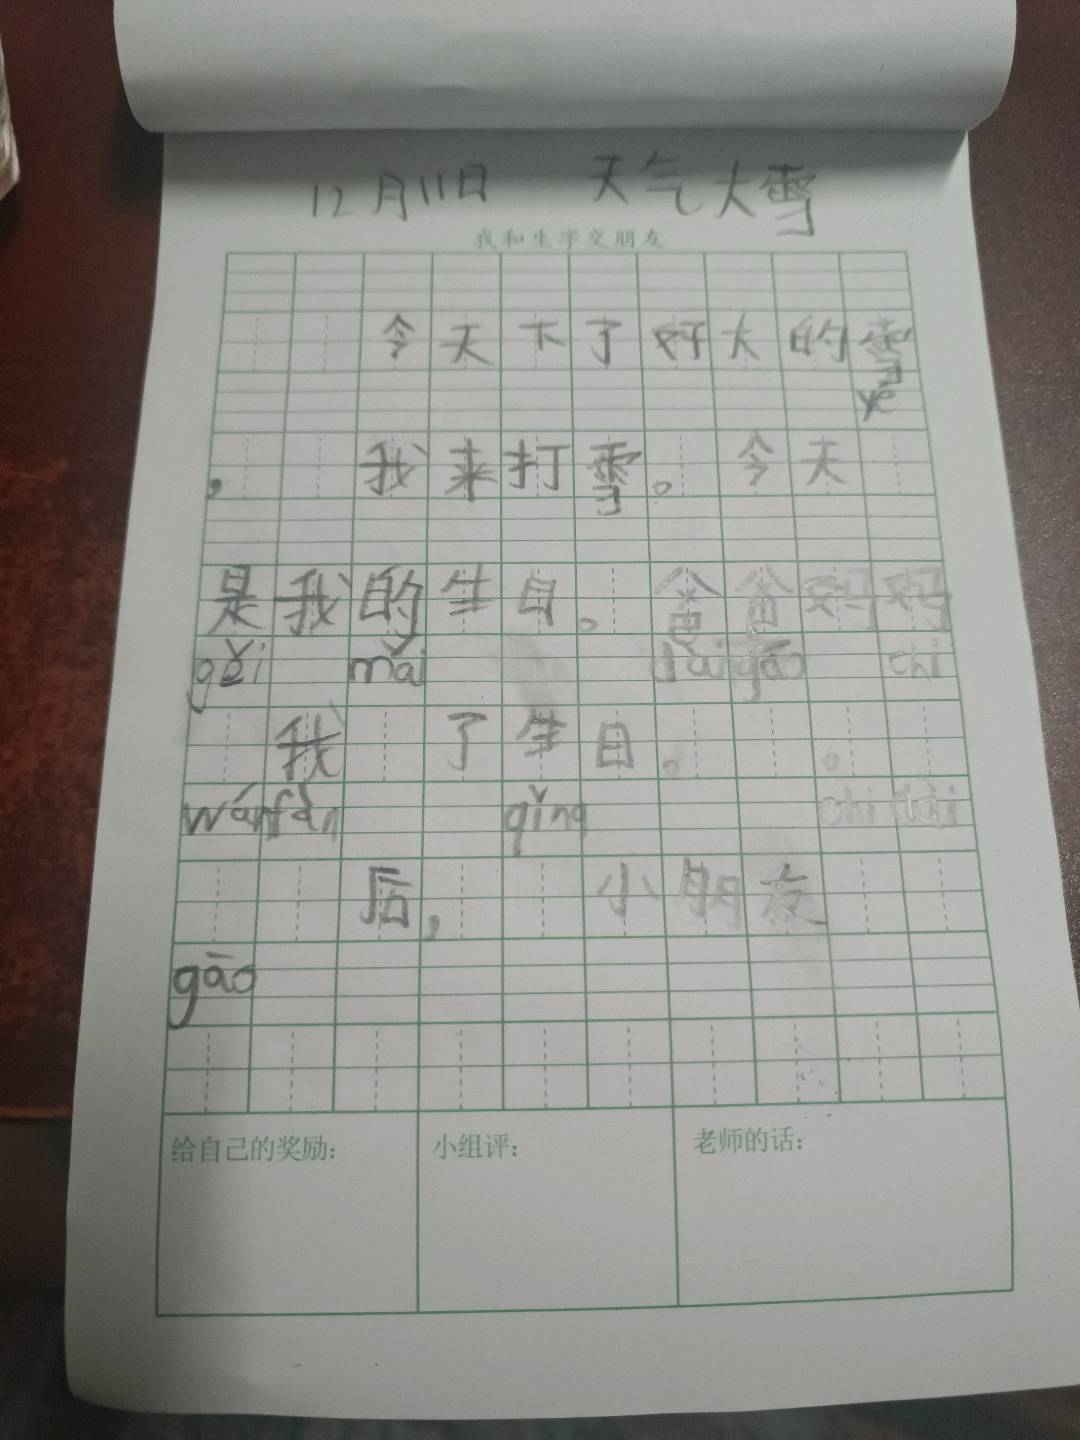 12月11日 天气大雪
我和生字交朋友
今天下了好大的雪
yè
，我来打雪。今天
是我的生日。爸爸妈妈
gěi mǎi dàigāo chi
我 了生日。 。
wǎnfàn qǐng chi dài
后， 小朋友
gāo
给自己的奖励： 小组评： 老师的话：